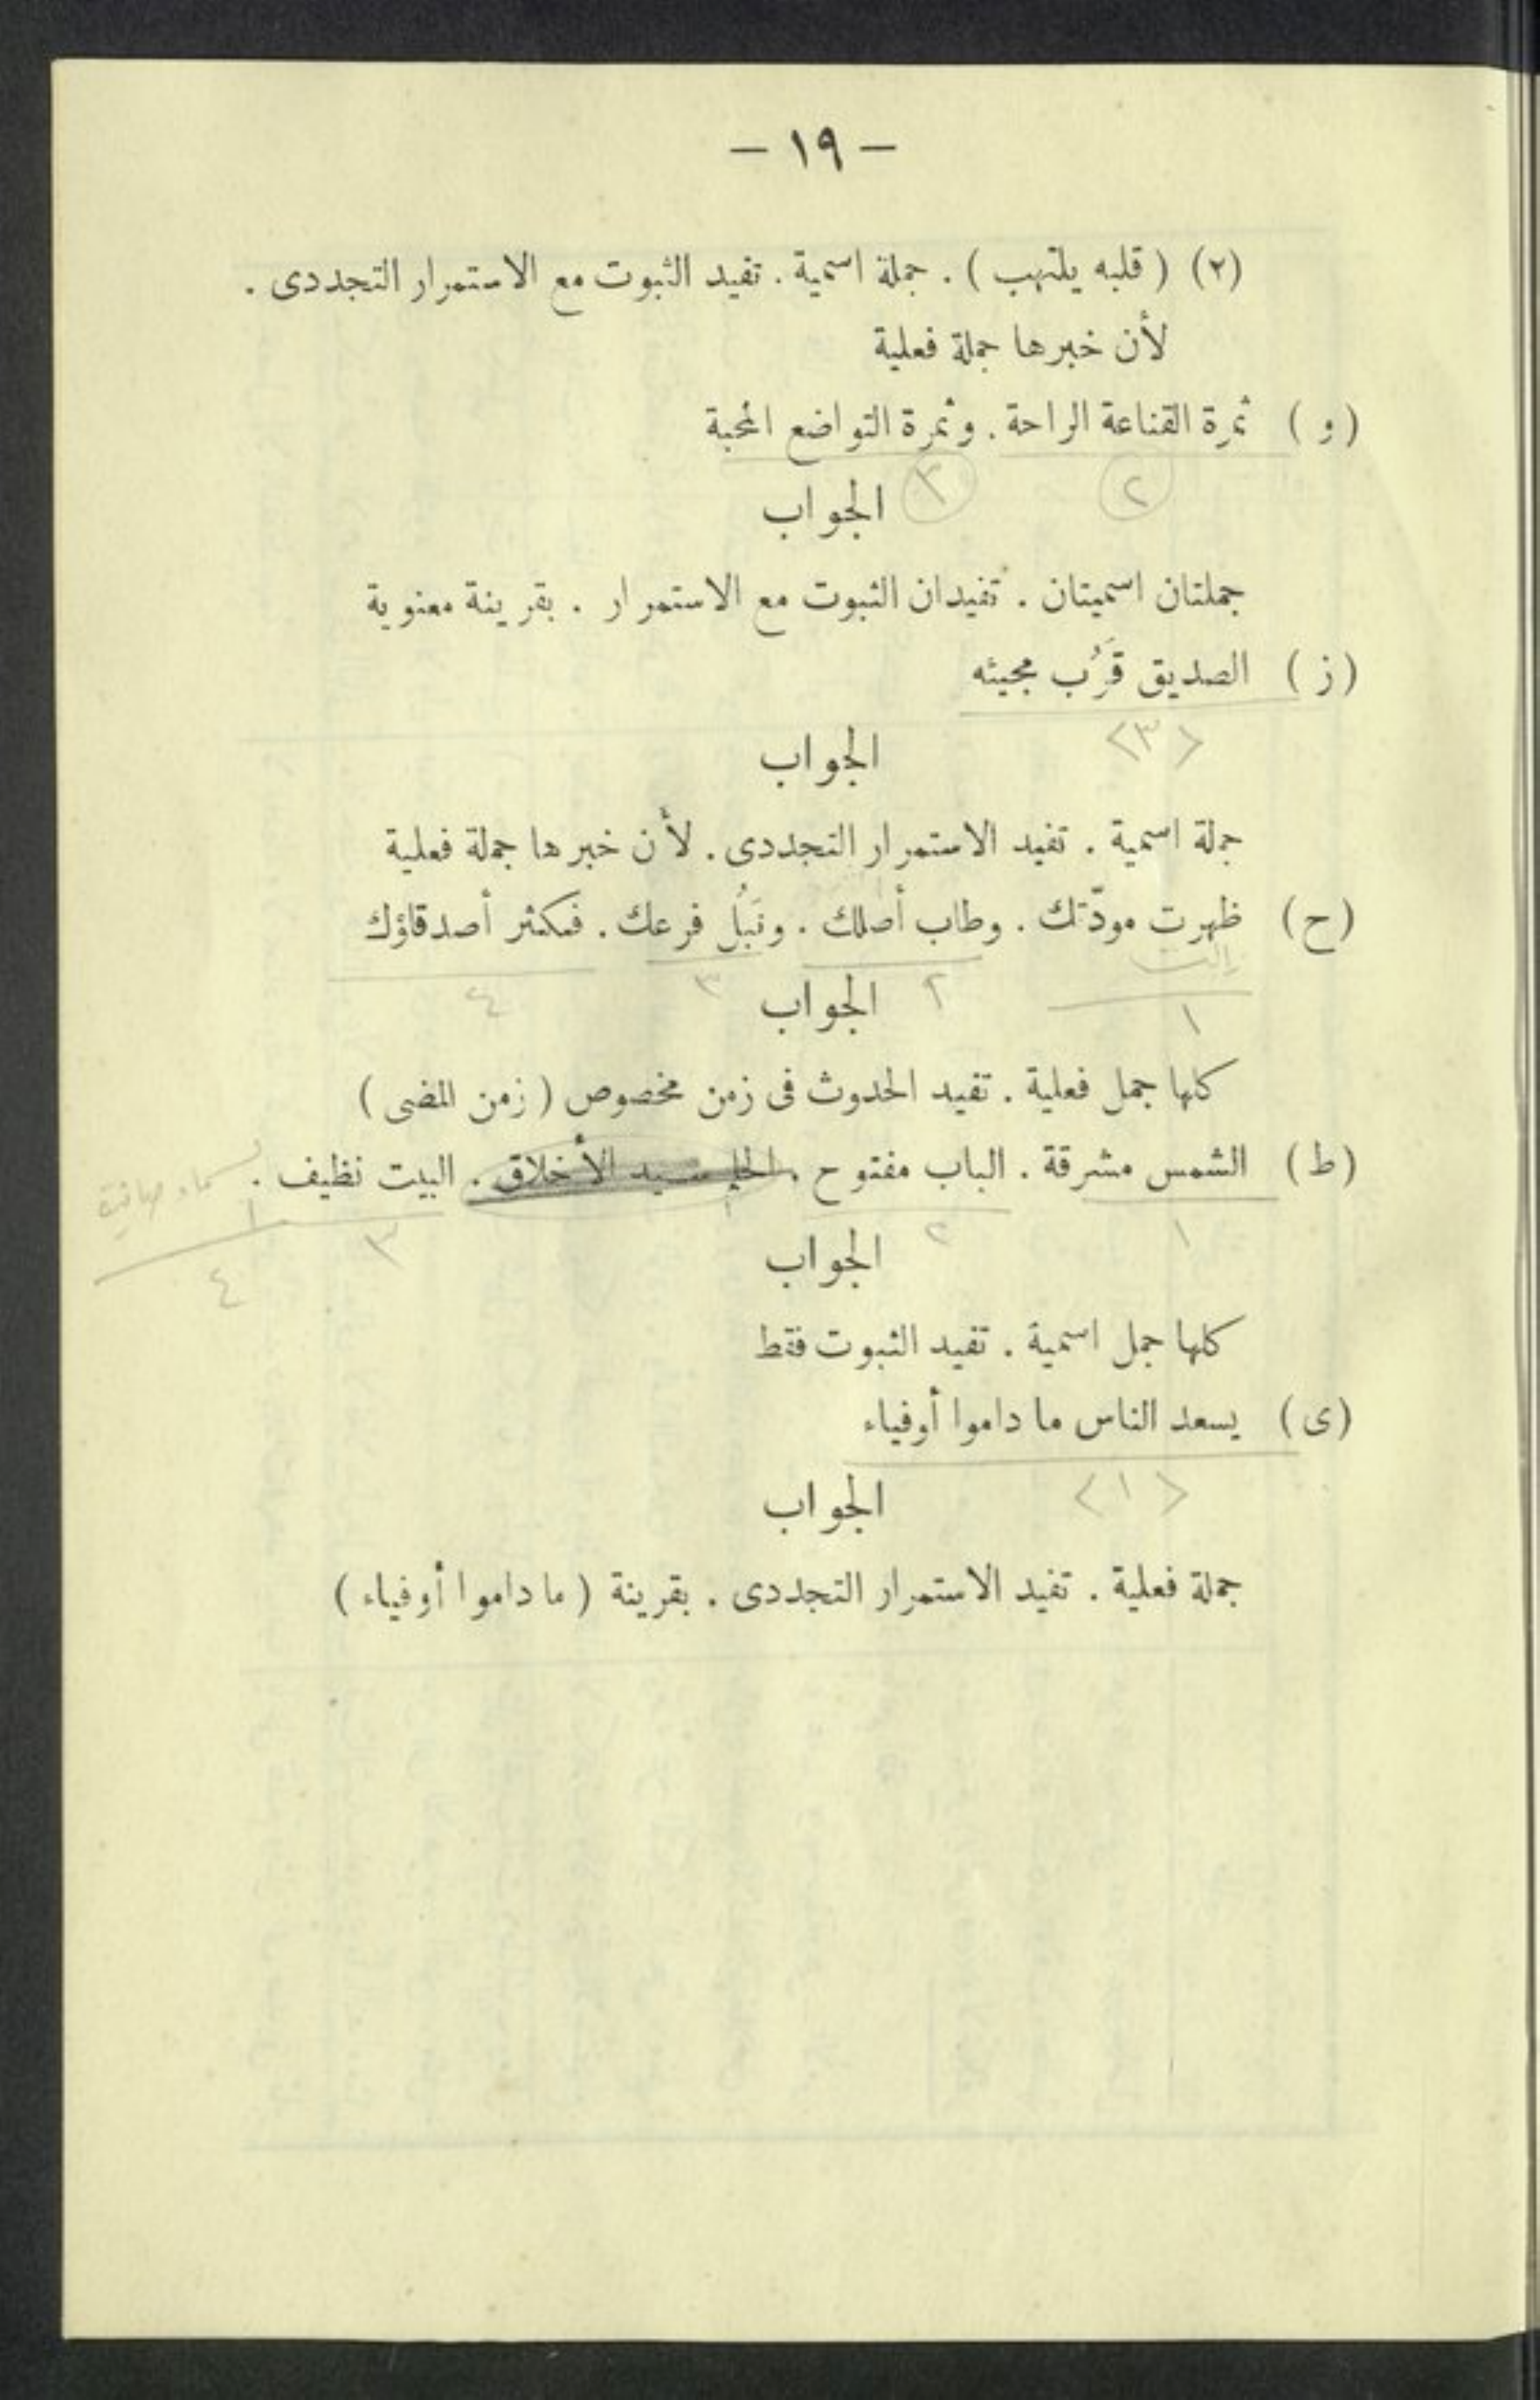 — ١٩ —
(٢) ( قلبه يلتهب ) . جملة اسمية . تفيد الثبوت مع الاستمرار التجددى .
لأن خبرها جملة فعلية
( و ) ثمرة القناعة الراحة . وثمرة التواضع المحبة
٢ ٣
الجواب
جملتان اسميتان . تفيدان الثبوت مع الاستمرار . بقرينة معنوية
( ز ) الصديق قَرُب مجيئه
<٣>
الجواب
جملة اسمية . تفيد الاستمرار التجددى . لأن خبرها جملة فعلية
(ح) ظهرت مودّتك . وطاب أصلك . ونَبُل فرعك . فكثر أصدقاؤك
١ ٢ ٣ ٤
الجواب
كلها جمل فعلية . تفيد الحدوث فى زمن مخصوص ( زمن المضى )
(ط) الشمس مشرقة . الباب مفتوح . سيد الأخلاق . البيت نظيف .
١ ٢ ٣ ٤
الجواب
كلها جمل اسمية . تفيد الثبوت فقط
(ى) يسعد الناس ما داموا أوفياء
<١>
الجواب
جملة فعلية . تفيد الاستمرار التجددى . بقرينة ( ما داموا أوفياء )